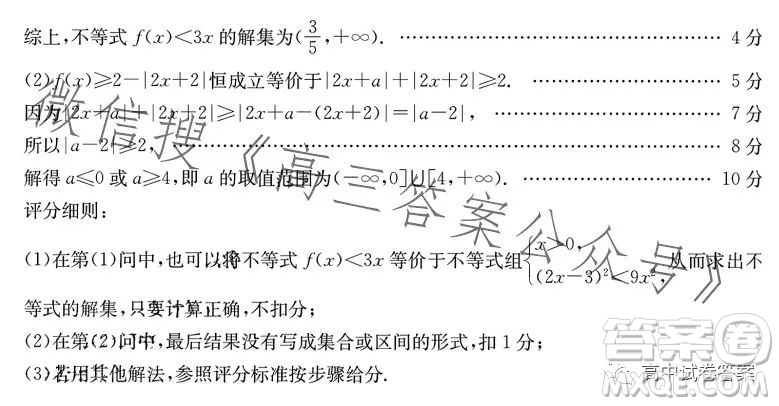 综上,不等式 f(x)<3x 的解集为(3/5,+∞). ………………………………… 4 分
(2)f(x)≥2-|2x+2|恒成立等价于|2x+a|+|2x+2|≥2. ………………………… 5 分
因为|2x+a|+|2x+2|≥|2x+a-(2x+2)|=|a-2|, ………………………… 7 分
所以|a-2|≥2, ………………………………… 8 分
解得 a≤0 或 a≥4,即 a 的取值范围为(-∞,0]∪[4,+∞). ………………………… 10 分
评分细则:
(1)在第(1)问中,也可以将不等式 f(x)<3x 等价于不等式组{x>0, (2x-3)²<9x², 从而求出不
等式的解集,只要计算正确,不扣分;
(2)在第(2)问中,最后结果没有写成集合或区间的形式,扣 1 分;
(3)若用其他解法,参照评分标准按步骤给分.
微信搜《高三答案公众号》
答案卷
高中试卷答案